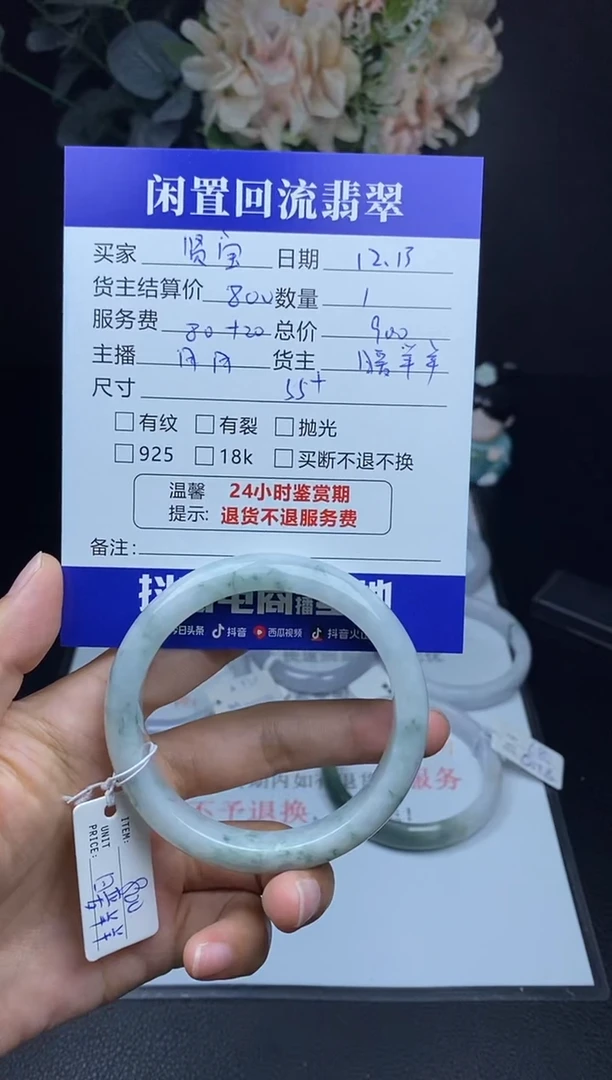 闲置回流翡翠
买家 贤宝 日期 12.13
货主结算价 800 数量 1
服务费 80+20 总价 900
主播 月月 货主 暖羊羊
尺寸 55+
有纹 有裂 抛光
925 18k 买断不退不换
温馨 24小时鉴赏期
提示: 退货不退服务费
备注:
抖 电商 播 地
今日头条 抖音 西瓜视频 抖音火山
服务
不予退换
ITEM: 800
UNIT PRICE: 暖羊羊